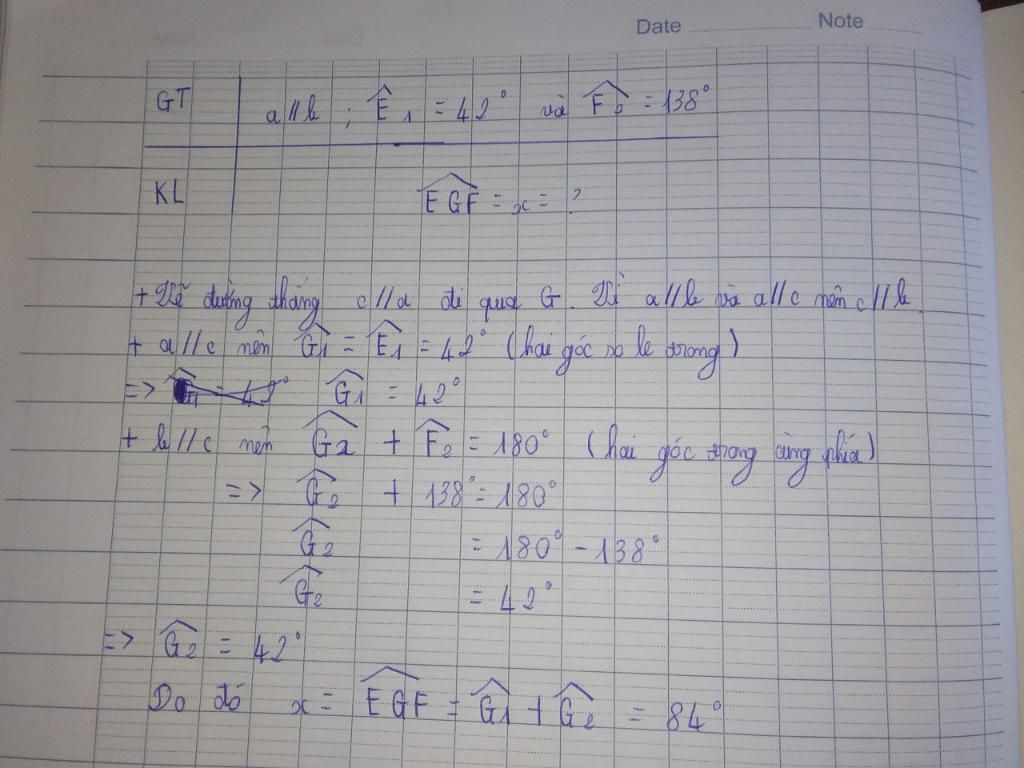 Date Note
GT a//b ; Ê1 = 42° và F̂2 = 138°
KL EGF = x = ?
+ Vẽ đường thẳng c//a đi qua G. Vì a//b và a//c nên c//b
+ a//c nên Ĝ1 = Ê1 = 42° (hai góc so le trong)
=> Ĝ1 = 42°
+ b//c nên Ĝ2 + F̂2 = 180° (hai góc trong cùng phía)
=> Ĝ2 + 138° = 180°
Ĝ2 = 180° - 138°
Ĝ2 = 42°
=> Ĝ2 = 42°
Do đó x = EGF = Ĝ1 + Ĝ2 = 84°